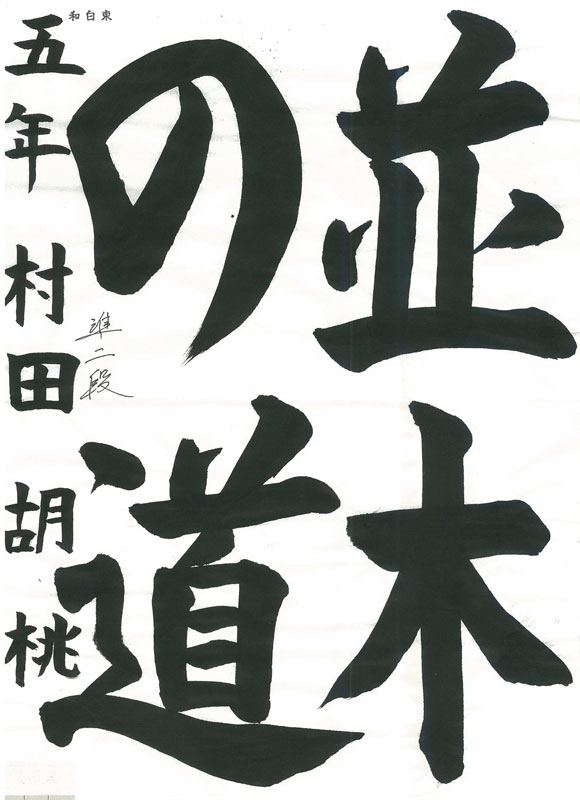 並木
の道
五年 村田 胡桃
準二段
東白和